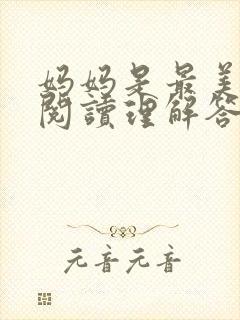 妈妈是最美
閱讀理解答
元音元音